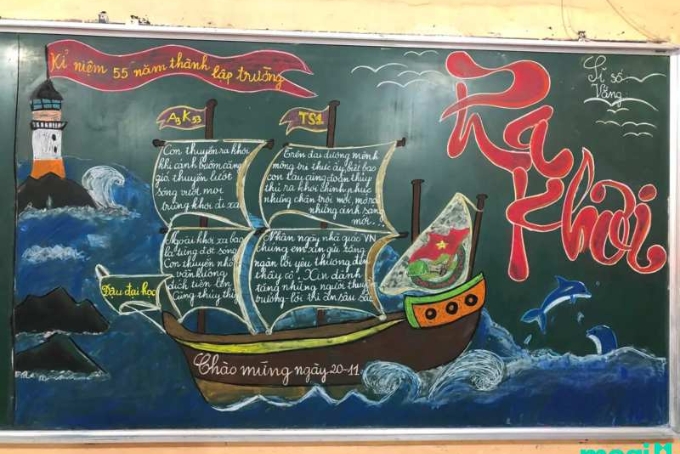 Kỉ niệm 55 năm thành lập trường
A3 K53
TS1
Ra
Khơi
Sĩ số
Vắng
Con thuyền ra khơi
khi cánh buồm căng
gió thuyền lướt
sóng vượt mọi
trùng khơi đi xa
Trên đại dương mênh
mông tri thức ấy, biết bao
con tàu cùng đoàn thủy
thủ ra khơi chinh phục
những chân trời mới, mở ra
những ánh sáng
mới...
Ngoài khơi xa bao
la từng đợt sóng
Con thuyền nhỏ
vẫn hướng
đích tiến lên
Cùng thủy thủ
Nhân ngày nhà giáo VN
chúng em xin gửi tặng
ngàn lời yêu thương đến
thầy cô. Xin dành
tặng những người thuyền
trưởng lời tri ân sâu sắc
Đậu đại học
Chào mừng ngày 20-11